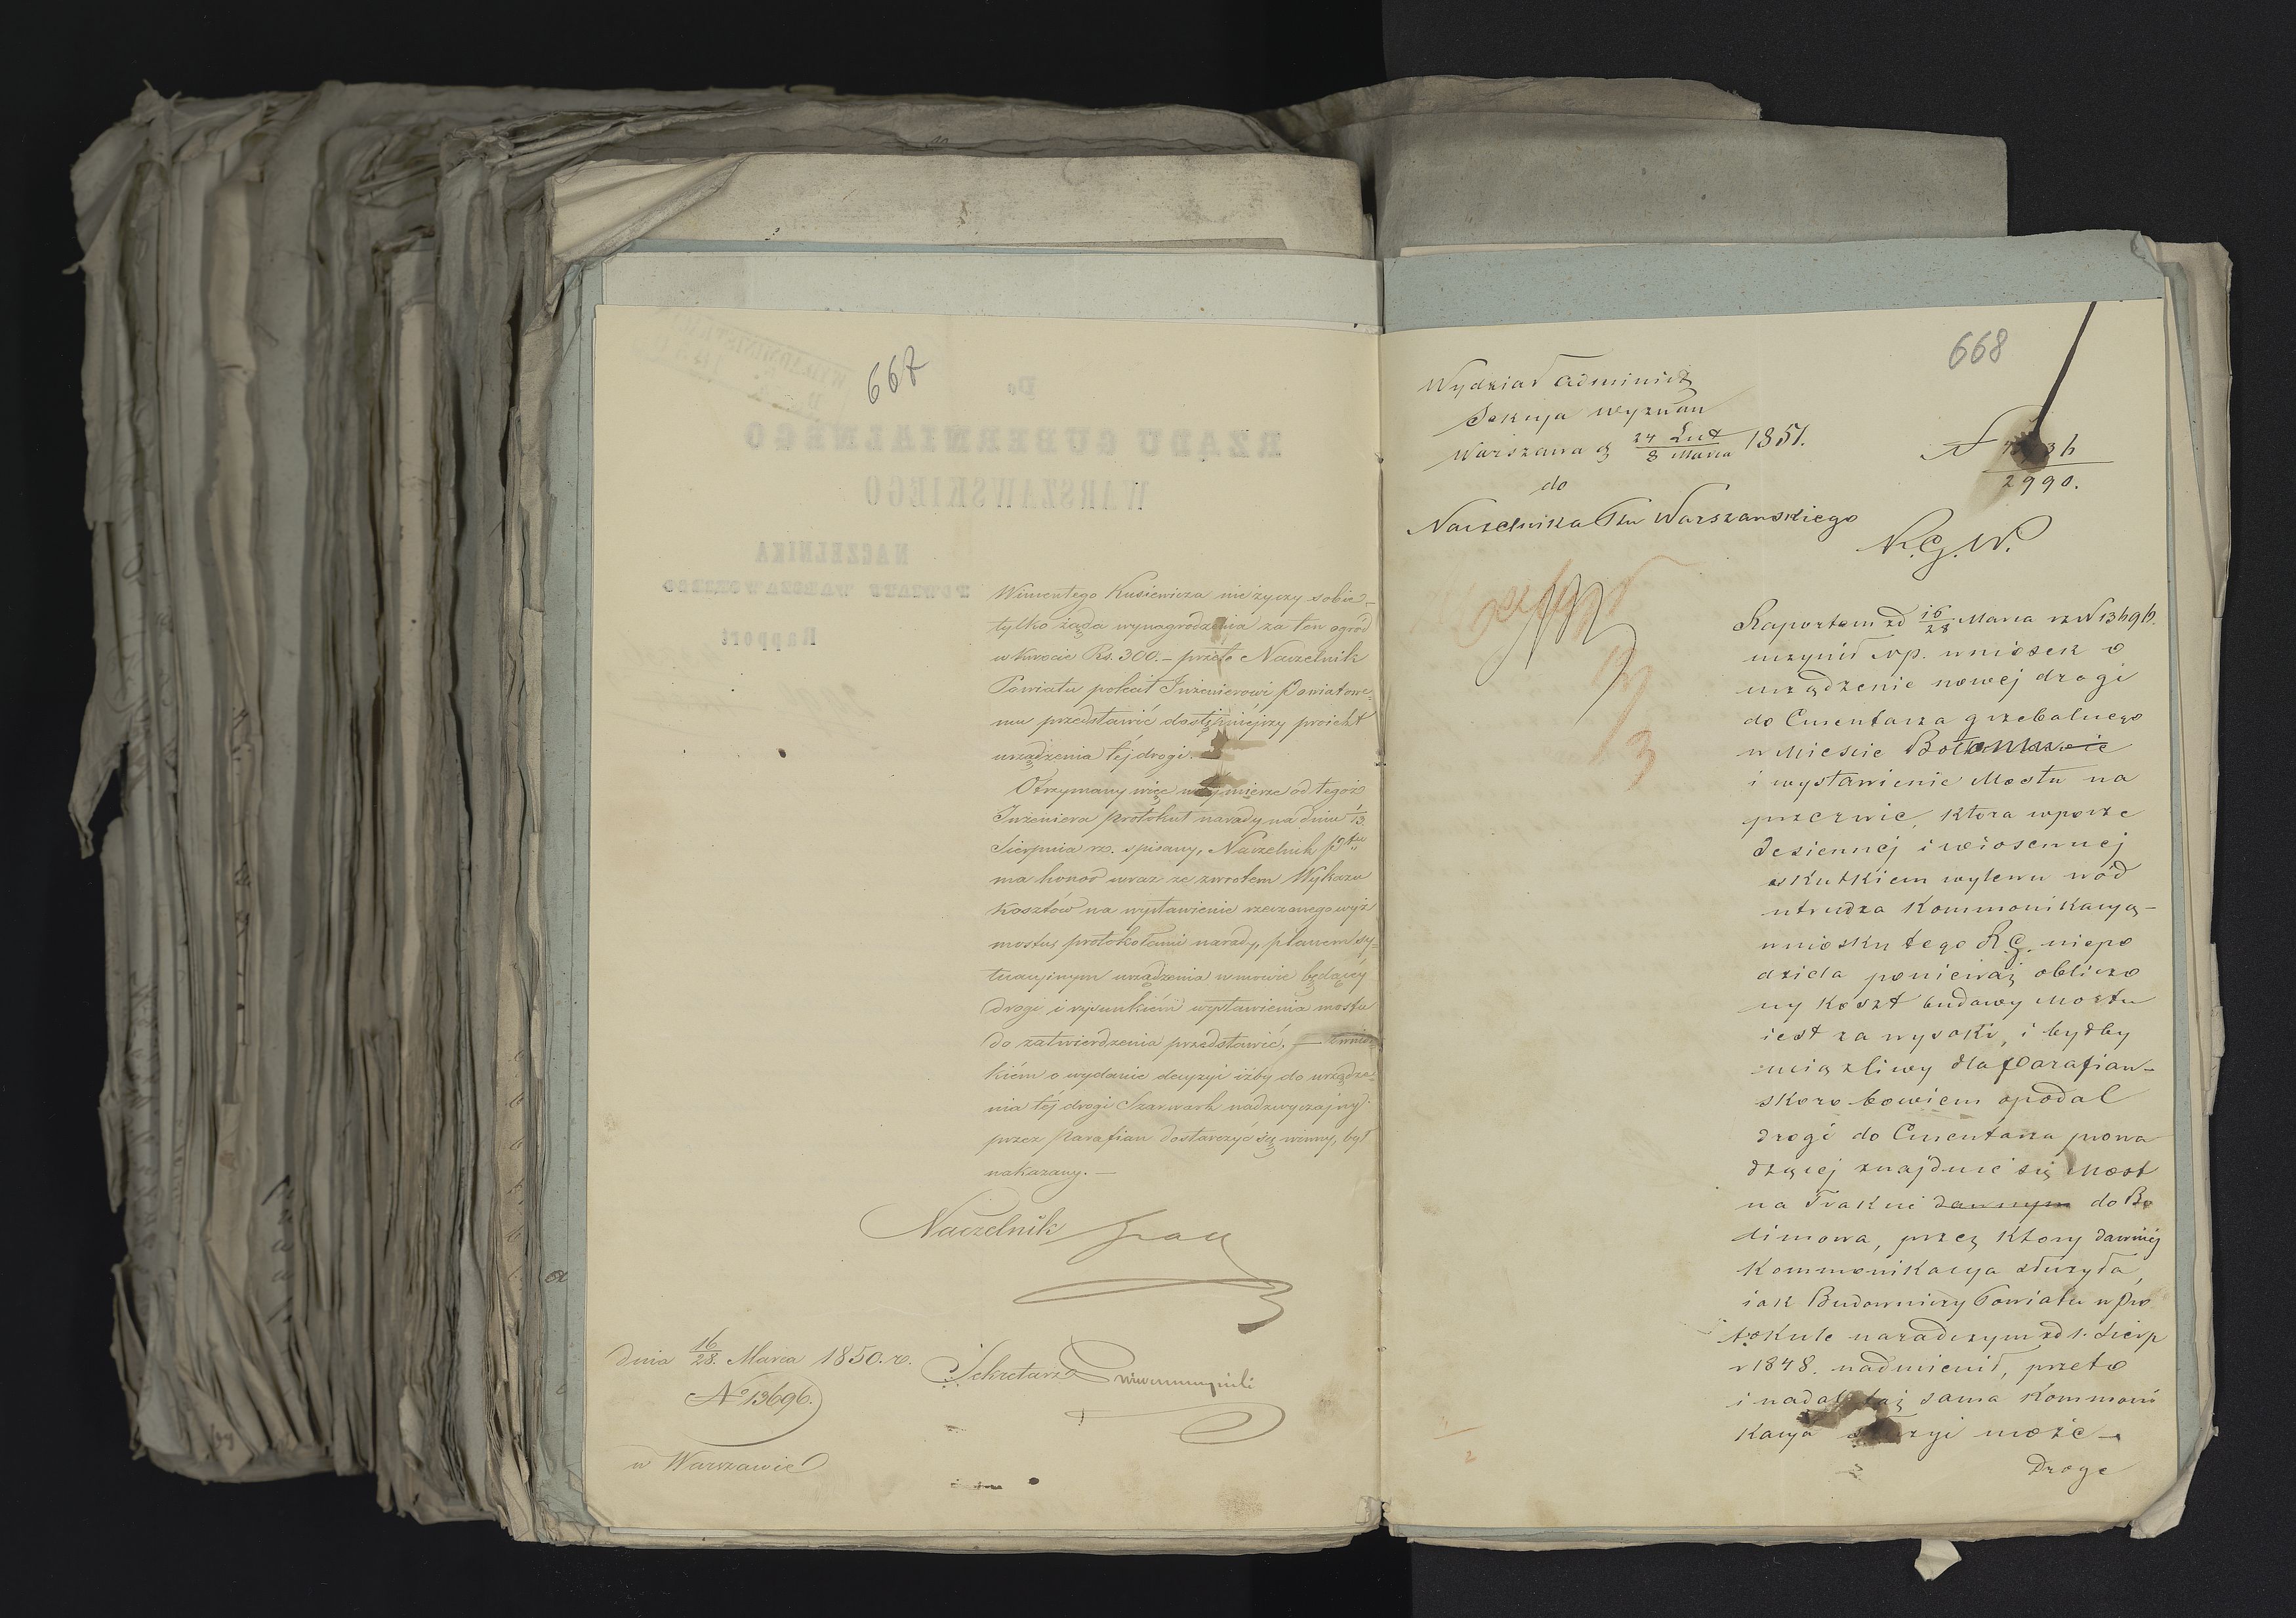 667
Wincentego Kusiewicza nie życzy sobie –
tylko żąda wynagrodzenia za ten ogród
w kwocie Rs. 300. – przeto Naczelnik
Powiatu polecił Inżenierowi Powiatowe-
mu przedstawić dostępniejszy projekt
urządzenia téj drogi.
Otrzymany więc w tymierze od tegoż
Inżeniera protokuł narady na dniu 1/13
Sierpnia rz. spisany, Naczelnik Ptu
ma honor wraz ze zwrotem Wykazu
kosztów na wystawienie rzeczonego wyż
mostu, protokołami narady, planem sy-
tuacyjnym urządzenia w mowie będącéj
drogi i rysunkiém wystawienia mostu
do zatwierdzenia przedstawić. — z wnios-
kiém o wydanie decyzyi iżby do urządze-
nia téj drogi Szarwark nadzwyczajny
przez Parafian dostarczyć się winny, był
nakazany. —
Naczelnik
dnia 16/28 Marca 1850. r.
Sekretarz
No 13696.
w Warszawie
668
Wydział Administ
Sekcya Wyznan
Warszawa d 24 Lut / 8 Marca 1851.
do
Naczelnika Ptu Warszawskiego
N
2990.
R. G. W.
Raportem zd 16/28 Marca rz N 13696.
uczynił Np. wniosek o
urządzenie nowej drogi
do Cmentarza grzebalnego
w Mieście
i wystawienie Mostu na
przerwie, ktora w porze
Jesiennej i wiosennej
skutkiem wylewu wód
utrudza Kommonikacyą –
wniosku tego R G. niepo
dziela ponieważ obliczo
ny koszt budowy Mostu
iest za wysoki, i byłby
uciążliwy dla Parafian –
skoro bowiem opodal
drogi do Cmentarza prowa
dzącej znajduie się Most
na Trakcie dawnym do Bo
limowa, przez ktory dawniej
Kommonikacya służyła,
iak Budowniczy Powiatu w Pro
tokule naradczym zd 1. Sierp
r 1848. nadmienił, przeto
i nadal taż sama Kommoni
kacya służyć może –
Droge